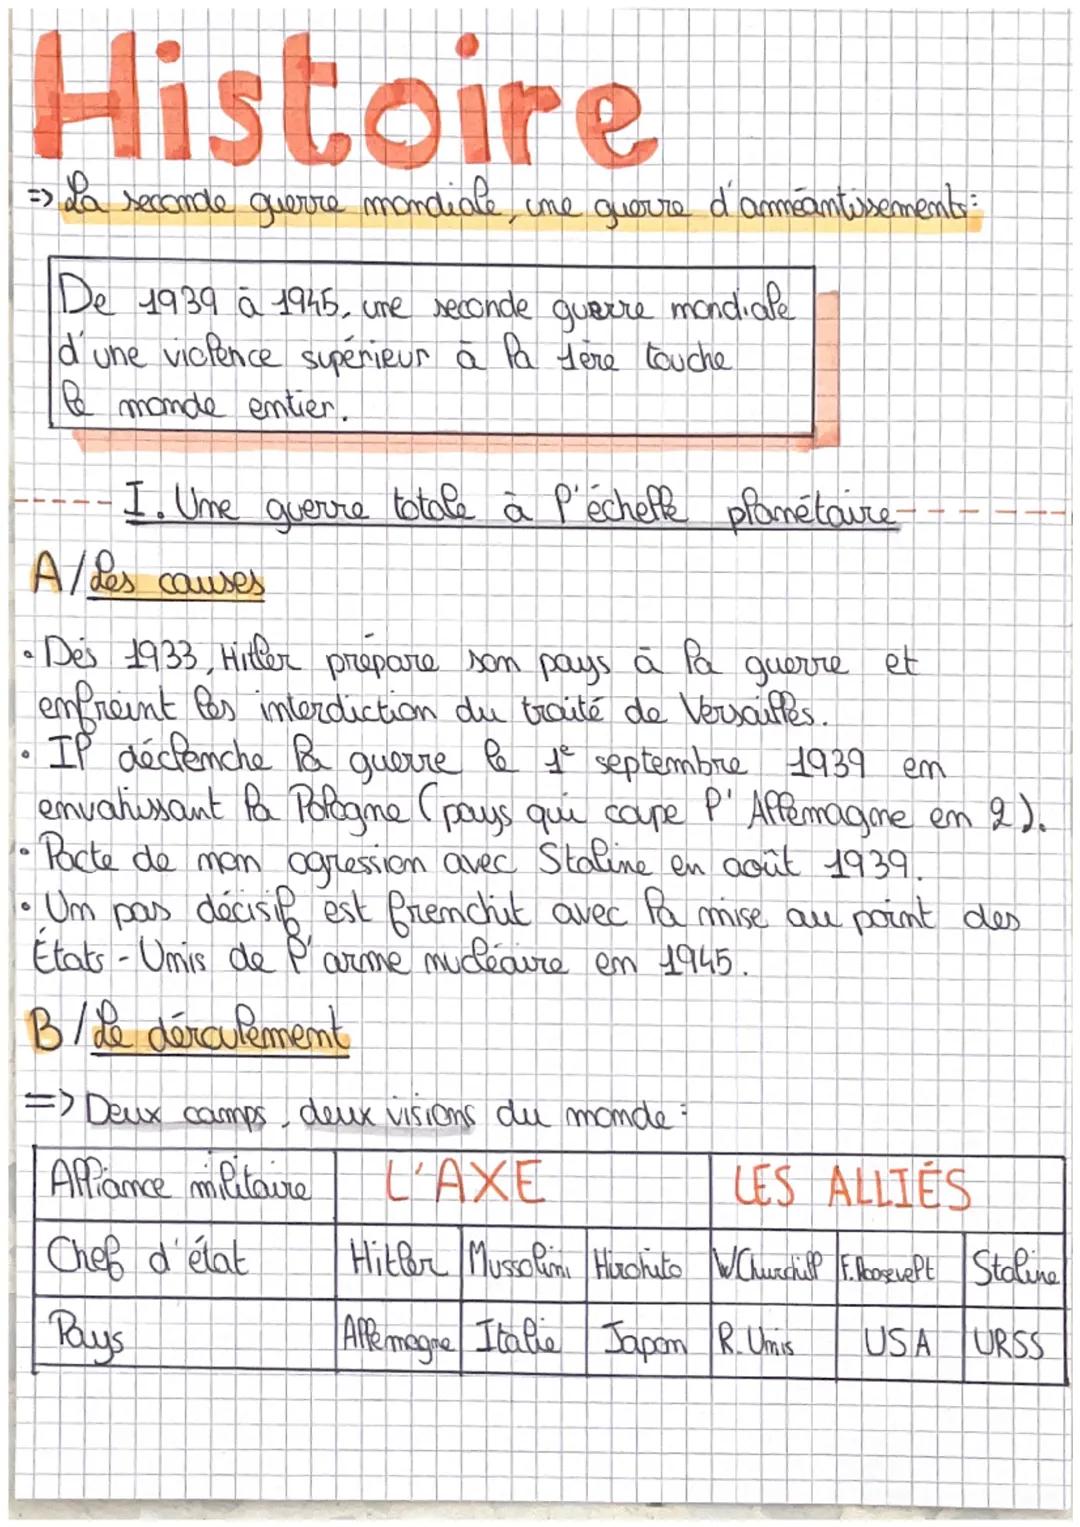 Histoire
=> La seconde guerre mondiale, une guerre d'annéantissements:
De 1939 à 1945, une seconde guerre mondiale
d'une violence supérieur à la 1ère touche
le monde entier.
I. Une guerre totale à l'échelle planétaire
A/ Les causes
• Dès 1933, Hitler prépare son pays à la guerre et
enfreint les interdiction du traité de Versailles.
• Il déclenche la guerre le 1e septembre 1939 en
envahissant la Pologne (pays qui coupe l'Allemagne en 2).
• Pacte de non agression avec Staline en août 1939.
• Un pas décisif est franchit avec la mise au point des
États-Unis de l'arme nucléaire en 1945.
B/ Le déroulement
=> Deux camps, deux visions du monde:
Alliance militaire L'AXE LES ALLIÉS
Chef d'état Hitler Mussolini Hirohito W Churchill F. Roosevelt Staline
Pays Allemagne Italie Japon R. Unis USA URSS